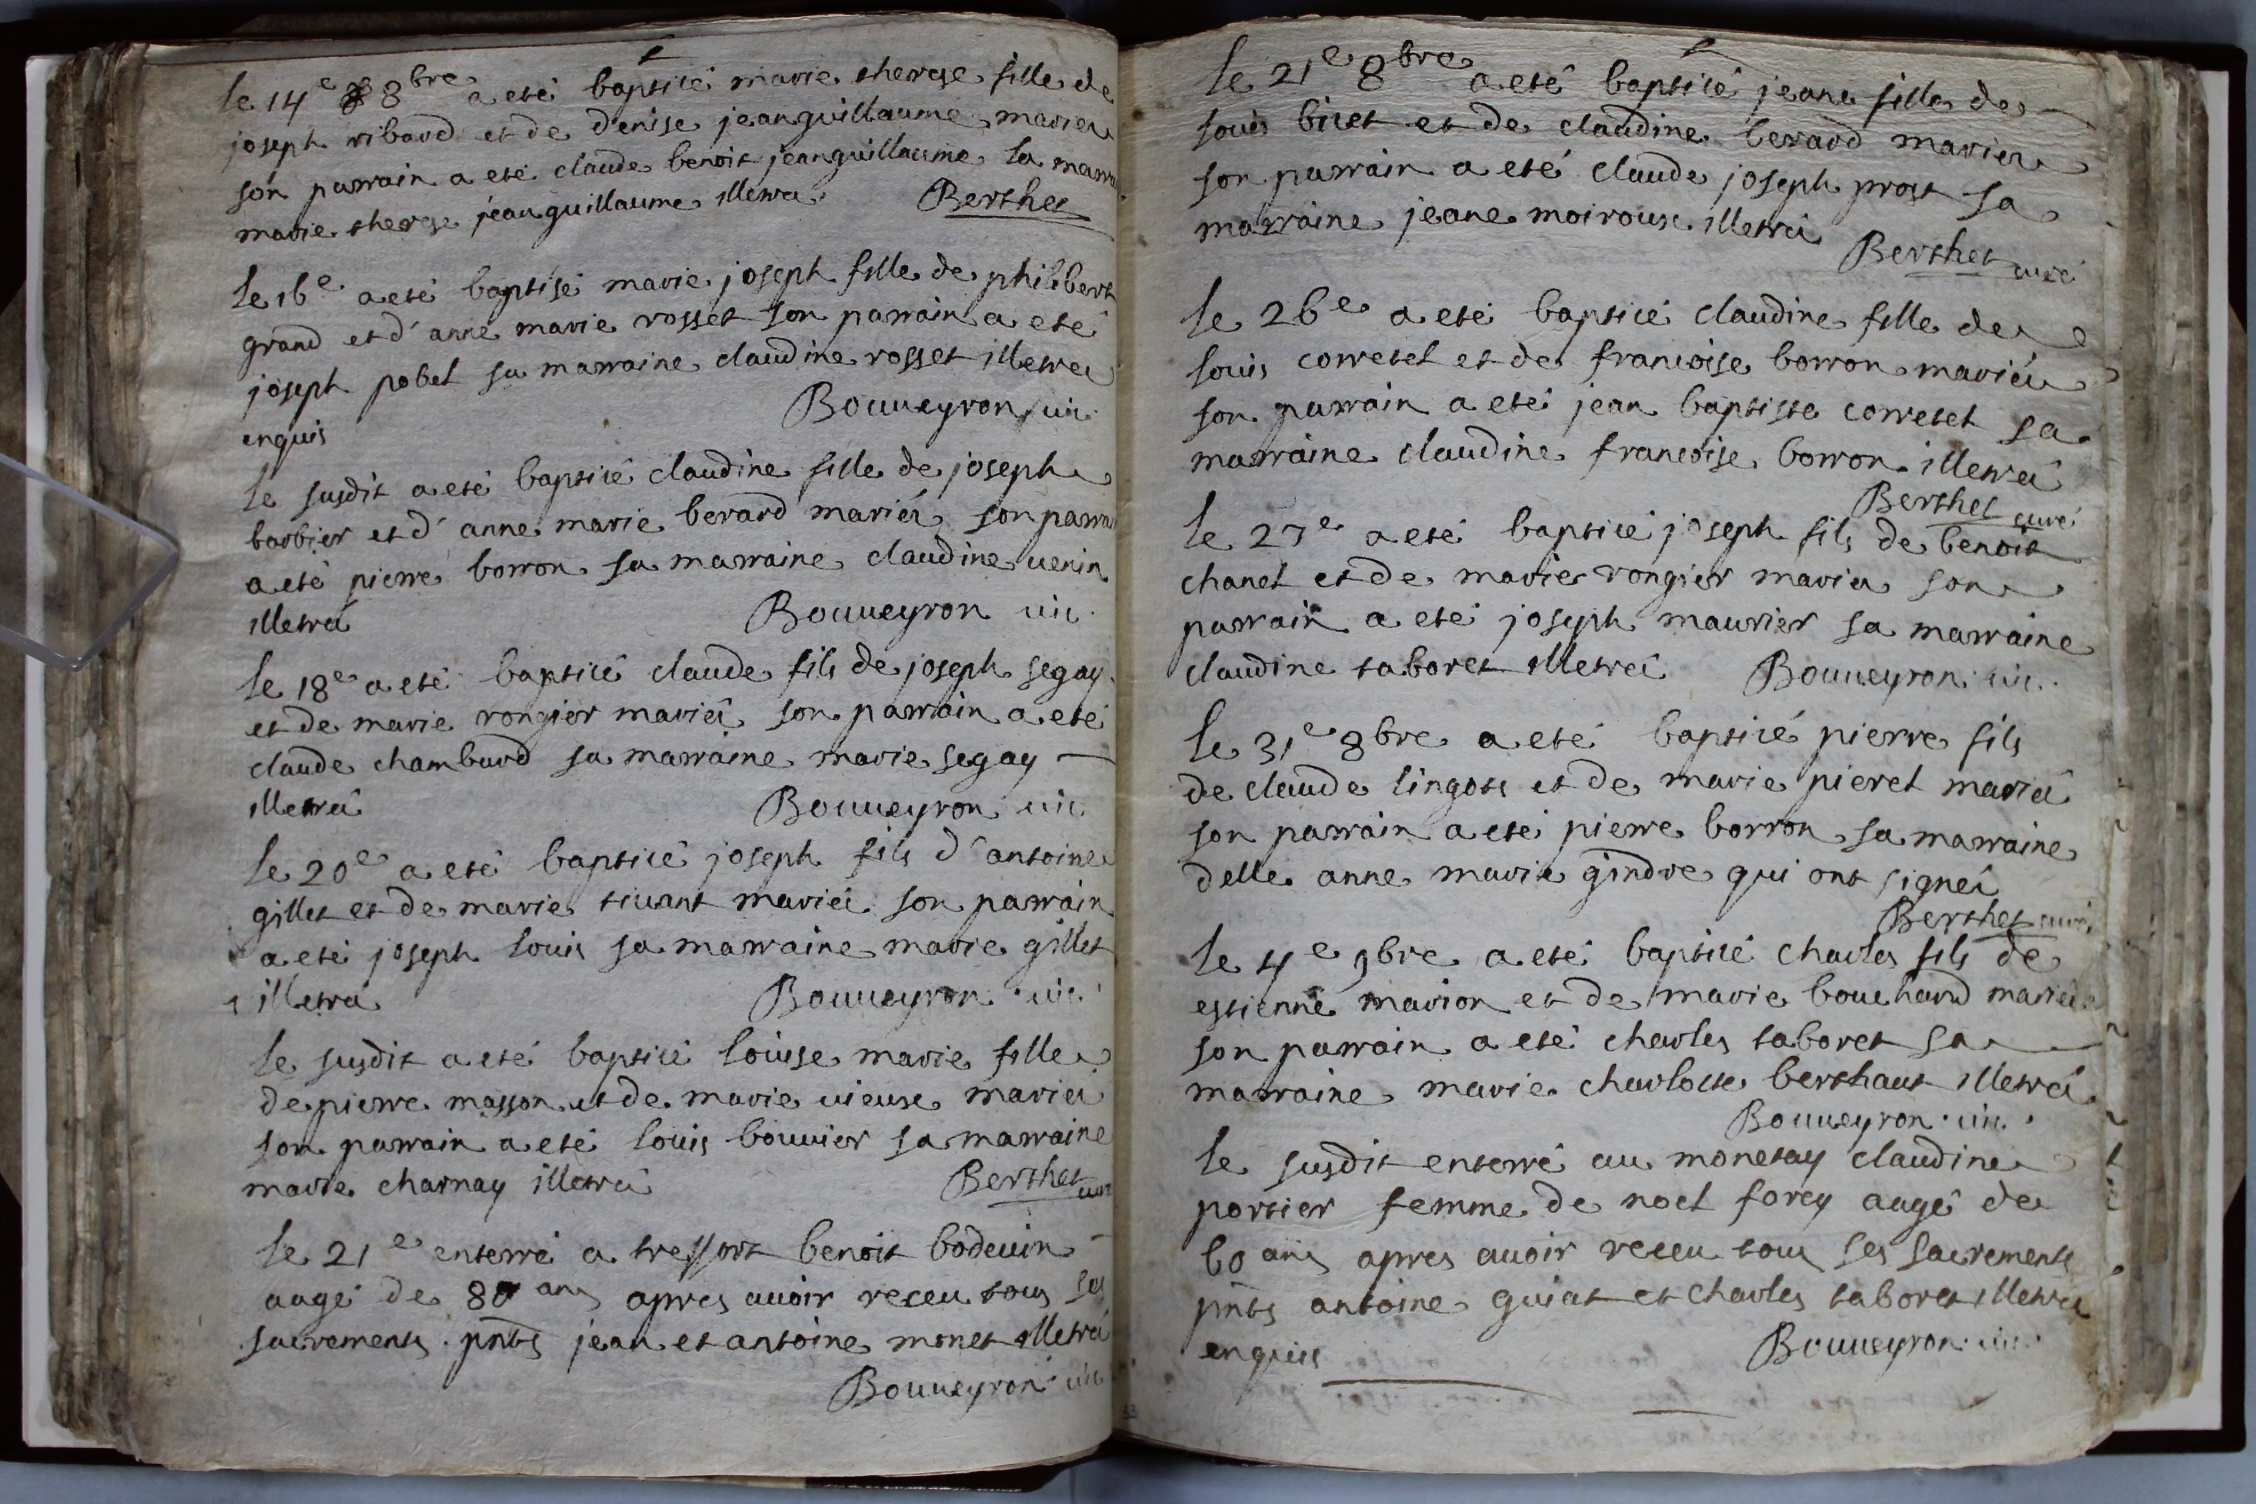 le 14e 8bre a eté bapticé marie therese fille de
joseph ribaud et de denise jeanguillaume mariés
son parrain a eté claude benoit jeanguillaume la marra
marie therese jeanguillaume illetrés Berthet
le 16e a eté baptisé marie joseph fille de philibert
grand et d'anne marie rosset son parrain a eté
joseph pobel sa marraine claudine rosset illetrés
enquis Bouueyron uic.
le susdit a eté bapticé claudine fille de joseph
barbier et d'anne marie berard mariés son parra
a eté pierre borron sa marraine claudine uenin
illetrés Bouueyron uic.
le 18e a eté bapticé claude fils de joseph segay
et de marie rongier mariés son parrain a eté
claude chambard sa marraine marie segay
illetrés Bouueyron uic.
le 20e a eté bapticé joseph fils d'antoine
gillet et de marie tiuant mariés son parrain
a eté joseph louis sa marraine marie gillet
illetrés Bouueyron uic.
le susdit a eté bapticé louise marie fille
de pierre masson et de marie uieux mariés
son parrain a eté louis bouuier sa marraine
marie charnay illetrés Berthet curé
le 21e enterré a tressort benoit bodeuin
aagé de 80 ans apres auoir receu tous ses
sacrements. pnts jean et antoine monet illetrés
Bouueyron uic
le 21e 8bre a eté bapticé jeane fille de
louis bicet et de claudine berard mariés
son parrain a eté claude joseph prost sa
marraine jeane moiroux illetrés
Berthet curé
le 26e a eté bapticé claudine fille de
louis corretel et de francoise borron mariés
son parrain a eté jean baptiste corretet sa
marraine claudine francoise borron illetrés
Berthet curé
le 27e a eté bapticé joseph fils de benoit
chanel et de marie rongier mariés son
parrain a eté joseph maurier sa marraine
claudine taboret illetrés Bouueyron uic.
le 31e 8bre a eté bapticé pierre fils
de claude lingots et de marie pieret mariés
son parrain a eté pierre borron sa marraine
delle anne marie gindre qui ont signés
Berthet curé
le 4e 9bre a eté bapticé charles fils de
estienne marion et de marie bouchard mariés
son parrain a eté charles taboret sa
marraine marie charlotte berthaut illetrés
Bouueyron uic.
le susdit enterré au monetay claudine
portier femme de noel forey aagé de
60 ans apres auoir receu tous ses sacrements
pnts antoine guiat et charles taboret illetrés
enquis Bouueyron uic.